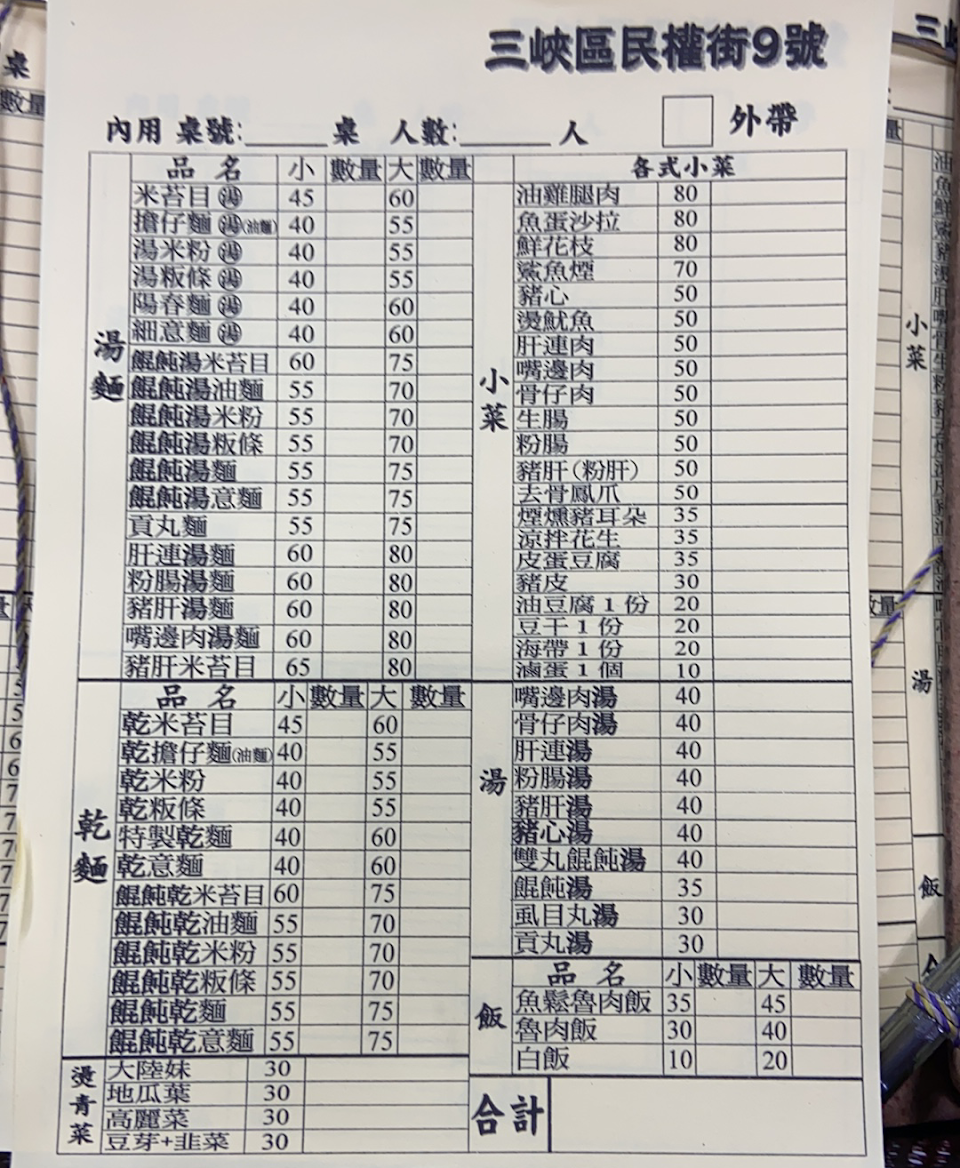 三峽區民權街9號
內用 桌號:______ 桌 人數:______ 人 外帶
湯麵
品名 小 數量 大 數量
米苔目 湯 45 60
擔仔麵 湯(油麵) 40 55
湯米粉 湯 40 55
湯粄條 湯 40 55
陽春麵 湯 40 60
細意麵 湯 40 60
餛飩湯米苔目 60 75
餛飩湯油麵 55 70
餛飩湯米粉 55 70
餛飩湯粄條 55 70
餛飩湯麵 55 75
餛飩湯意麵 55 75
貢丸麵 55 75
肝連湯麵 60 80
粉腸湯麵 60 80
豬肝湯麵 60 80
嘴邊肉湯麵 60 80
豬肝米苔目 65 80
乾麵
品名 小 數量 大 數量
乾米苔目 45 60
乾擔仔麵(油麵) 40 55
乾米粉 40 55
乾粄條 40 55
特製乾麵 40 60
乾意麵 40 60
餛飩乾米苔目 60 75
餛飩乾油麵 55 70
餛飩乾米粉 55 70
餛飩乾粄條 55 70
餛飩乾麵 55 75
餛飩乾意麵 55 75
燙青菜
大陸妹 30
地瓜葉 30
高麗菜 30
豆芽+韭菜 30
小菜
各式小菜
油雞腿肉 80
魚蛋沙拉 80
鮮花枝 80
鯊魚煙 70
豬心 50
燙魷魚 50
肝連肉 50
嘴邊肉 50
骨仔肉 50
生腸 50
粉腸 50
豬肝(粉肝) 50
去骨鳳爪 50
煙燻豬耳朵 35
涼拌花生 35
皮蛋豆腐 35
豬皮 30
油豆腐1份 20
豆干1份 20
海帶1份 20
滷蛋1個 10
湯
嘴邊肉湯 40
骨仔肉湯 40
肝連湯 40
粉腸湯 40
豬肝湯 40
豬心湯 40
雙丸餛飩湯 40
餛飩湯 35
虱目丸湯 30
貢丸湯 30
飯
品名 小 數量 大 數量
魚鬆魯肉飯 35 45
魯肉飯 30 40
白飯 10 20
合計